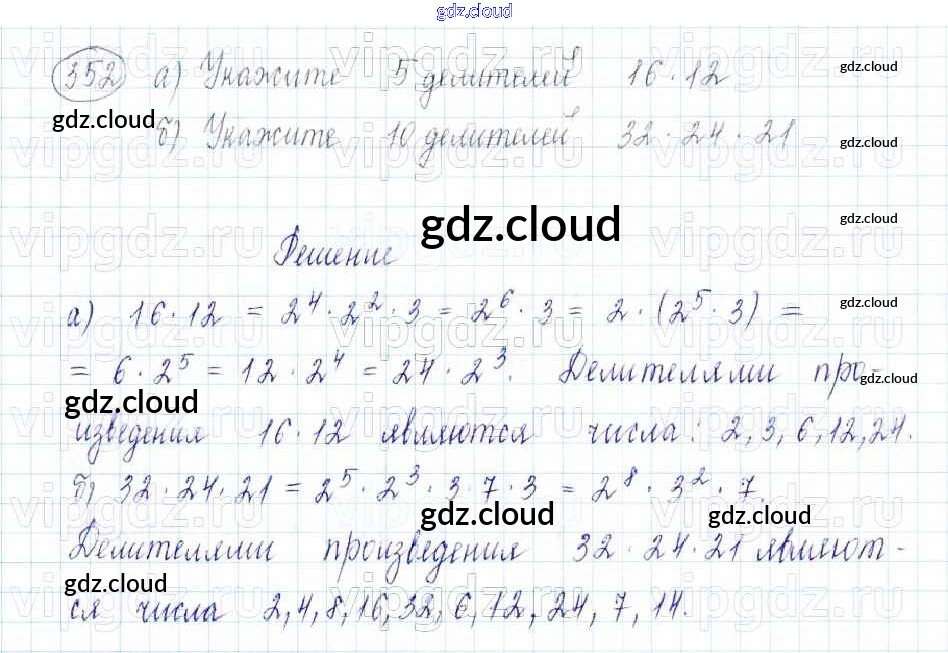 gdz.cloud
352 а) Укажите 5 делителей 16 · 12 gdz.cloud
gdz.cloud б) Укажите 10 делителей 32 · 24 · 21 gdz.cloud
gdz.cloud gdz.cloud
Решение
а) 16 · 12 = 2⁴ · 2² · 3 = 2⁶ · 3 = 2 · (2⁵ · 3) = gdz.cloud
= 6 · 2⁵ = 12 · 2⁴ = 24 · 2³. Делителями про- gdz.cloud
gdz.cloud
изведения 16 · 12 являются числа: 2, 3, 6, 12, 24.
б) 32 · 24 · 21 = 2⁵ · 2³ · 3 · 7 · 3 = 2⁸ · 3² · 7.
gdz.cloud gdz.cloud
Делителями произведения 32 · 24 · 21 являют-
gdz.cloud
ся числа 2, 4, 8, 16, 32, 6, 12, 24, 7, 14.
vipgdz.ru vipgdz.ru vipgdz.ru